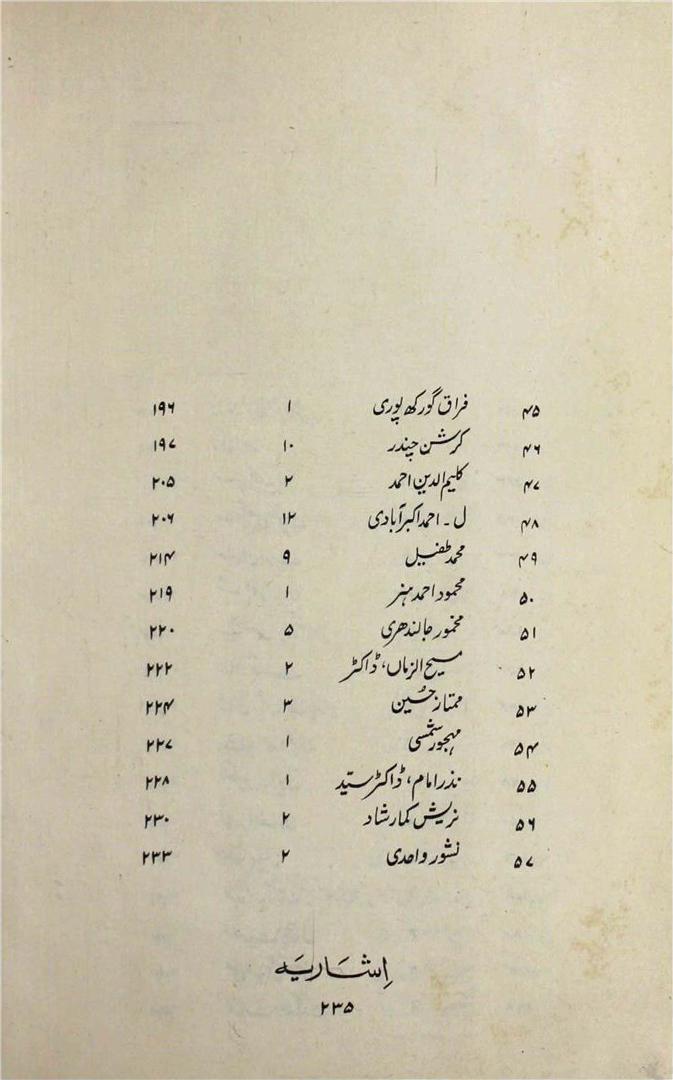 ۴۵ فراق گورکھپوری ۱ ۱۹۶
۴۶ کرشن چندر ۱۰ ۱۹۷
۴۷ کلیم الدین احمد ۲ ۲۰۵
۴۸ ل ۔ احمد اکبر آبادی ۱۲ ۲۰۶
۴۹ محمد طفیل ۹ ۲۱۴
۵۰ محمود احمد ہنر ۱ ۲۱۹
۵۱ مخمور جالندھری ۵ ۲۲۰
۵۲ مسیح الزماں، ڈاکٹر ۲ ۲۲۲
۵۳ ممتاز حسین ۳ ۲۲۴
۵۴ مہجور شمسی ۱ ۲۲۷
۵۵ نذر امام، ڈاکٹر سیّد ۱ ۲۲۸
۵۶ نریش کمار شاد ۲ ۲۳۰
۵۷ نشور واحدی ۲ ۲۳۳
اِشاریہ
۲۳۵